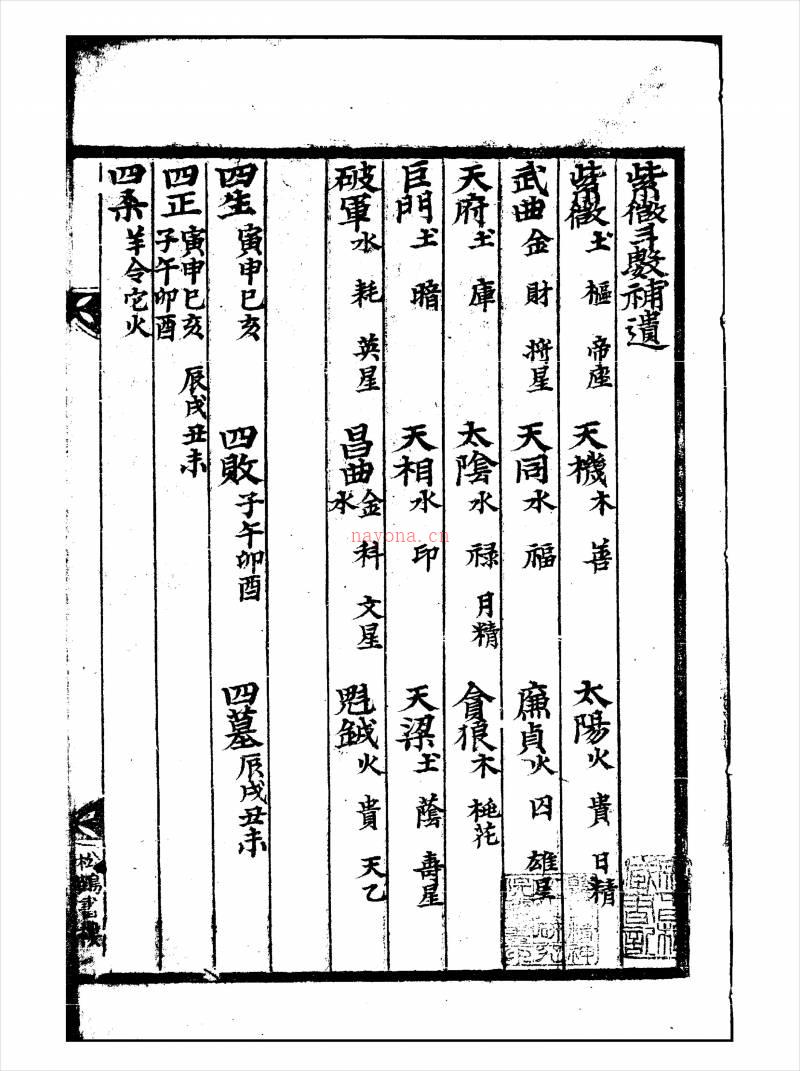 紫微斗數補遺
紫微土 樞 帝座 天機木 善 太陽火 貴 日精
武曲金 財 将星 天同水 福 廉貞火 囚 雄星
天府土 庫 太陰水 禄 月精 貪狼木 桃花
巨門土 暗 天相水 印 天梁土 蔭 壽星
破軍水 耗 英星 昌曲金水 科 文星 魁鉞火 貴 天乙
四生 寅申巳亥 四敗 子午卯酉 四墓 辰戌丑未
四正 寅申巳亥 子午卯酉 辰戌丑未
四柔 羊令它火
松鶴書樓
nayona.cn